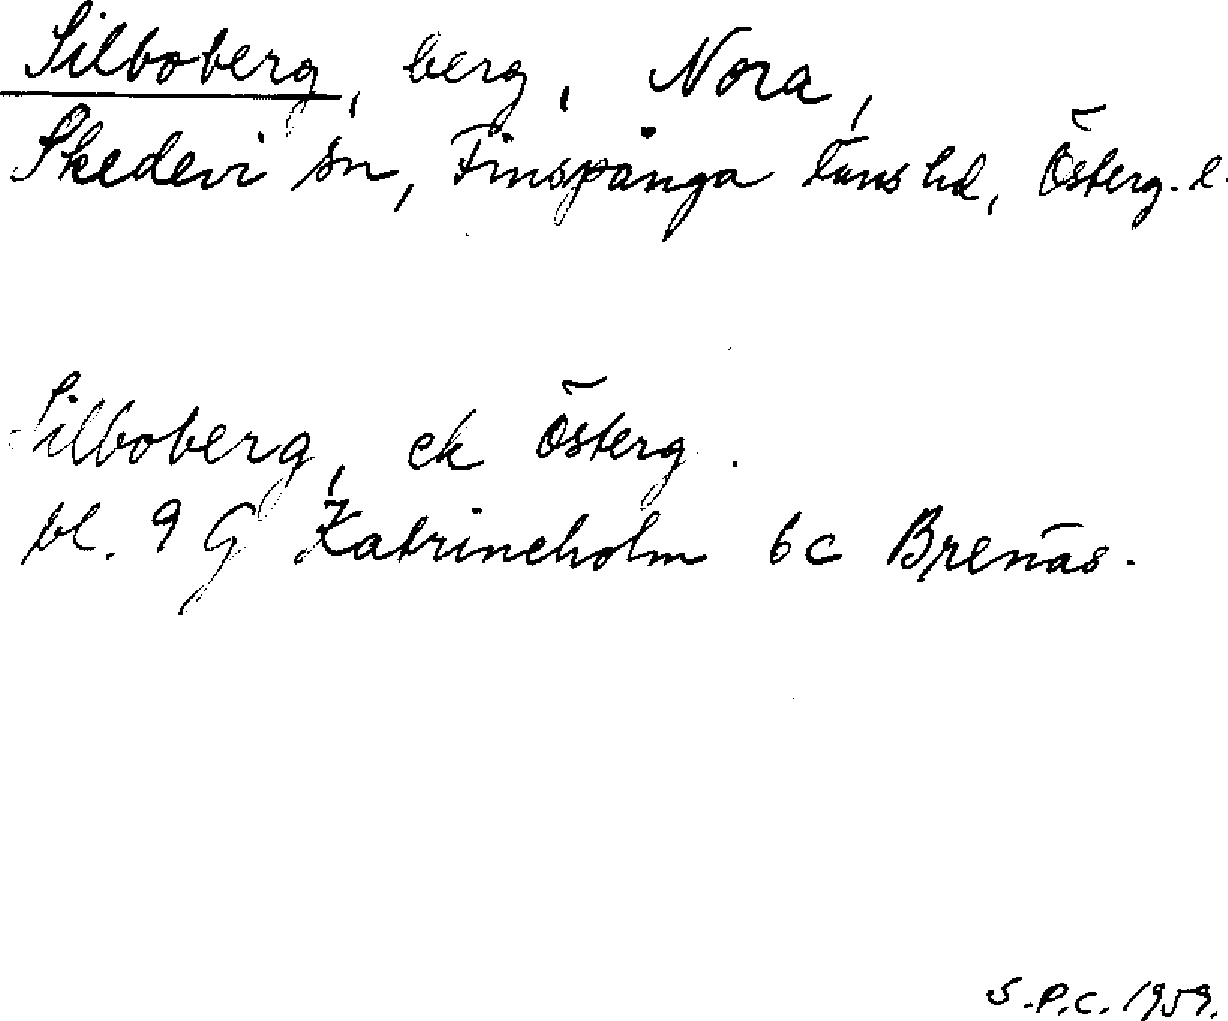 Silboberg, berg, Nora,
Skedevi sn, Finspånga läns hd, Österg. l.
Silboberg, ek Österg.
bl. 9 G Katrineholm 6c Brenäs.
S.P.C. 1959.